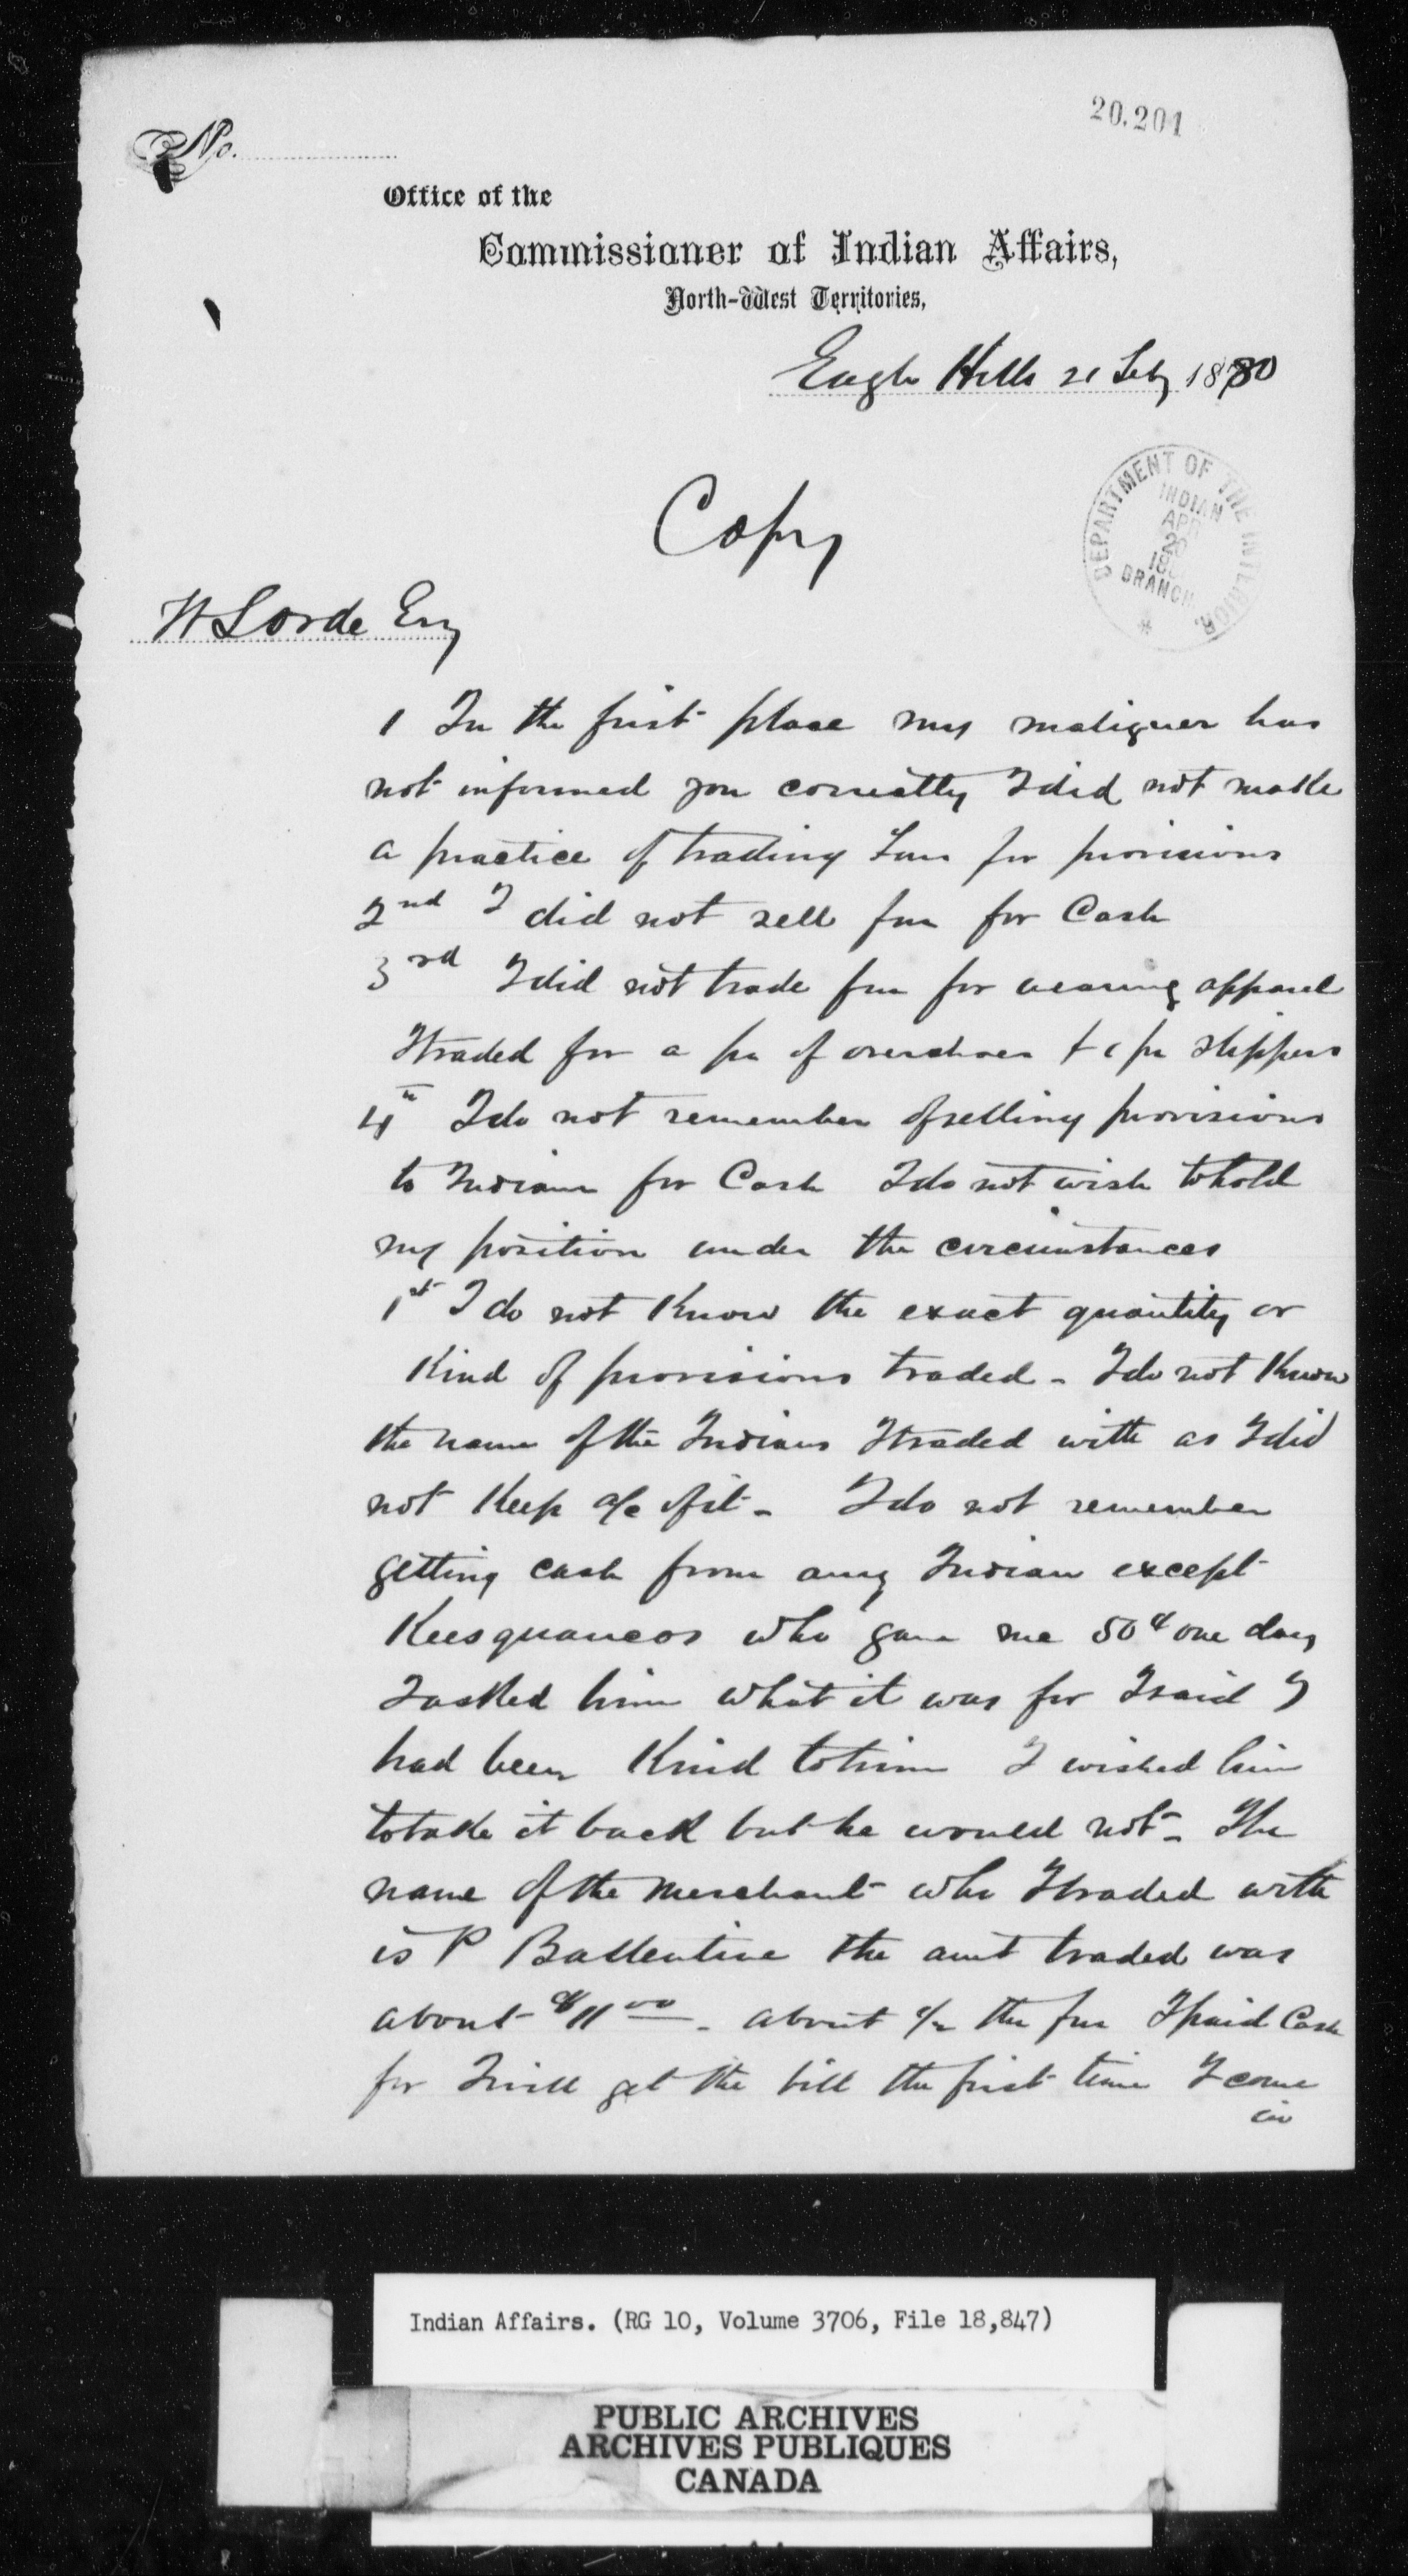 20.201
No.
Office of the
Commissioner of Indian Affairs,
North-West Territories,
Eagle Hills 21 Feby 1880
Copy
DEPARTMENT OF THE INTERIOR.
INDIAN
APR
BRANCH
*
W Lorde Esq
1 In the first place my maligner has
not informed you correctly I did not make
a practice of trading furs for provisions
2nd I did not sell fur for Cash
3rd I did not trade fur for wearing apparel
I traded for a pr of overshoes & 1 pr slippers
4th I do not remember of selling provisions
to Indians for Cash I do not wish to hold
my position under the circumstances
1st I do not know the exact quantity or
Kind of provisions traded - I do not know
the name of the Indians I traded with as I did
not Keep a/c of it - I do not remember
getting cash from any Indian except
Keesquaneos who gave me 50¢ one day
I asked him what it was for I said I
had been Kind to him I wished him
to take it back but he would not - The
name of the merchant who I traded with
is P Ballentine the amt traded was
about $11 00 - about 1/2 the fur I paid Cash
for I will get the bill the first time I come
in
Indian Affairs. (RG 10, Volume 3706, File 18,847)
PUBLIC ARCHIVES
ARCHIVES PUBLIQUES
CANADA